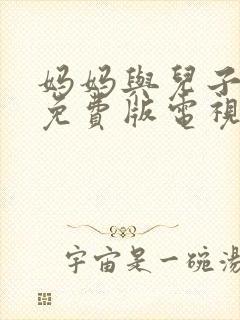 妈妈與兒子
免費版電視
宇宙是一碗湯